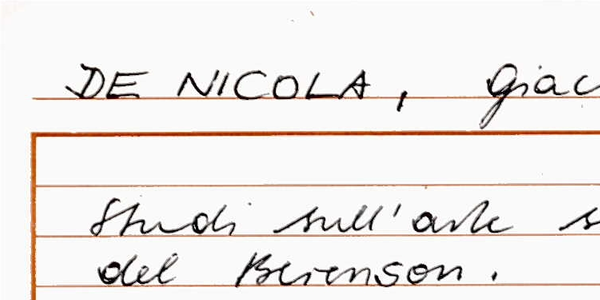 DE NICOLA, Giac
Studi sull'arte s
del Berenson.